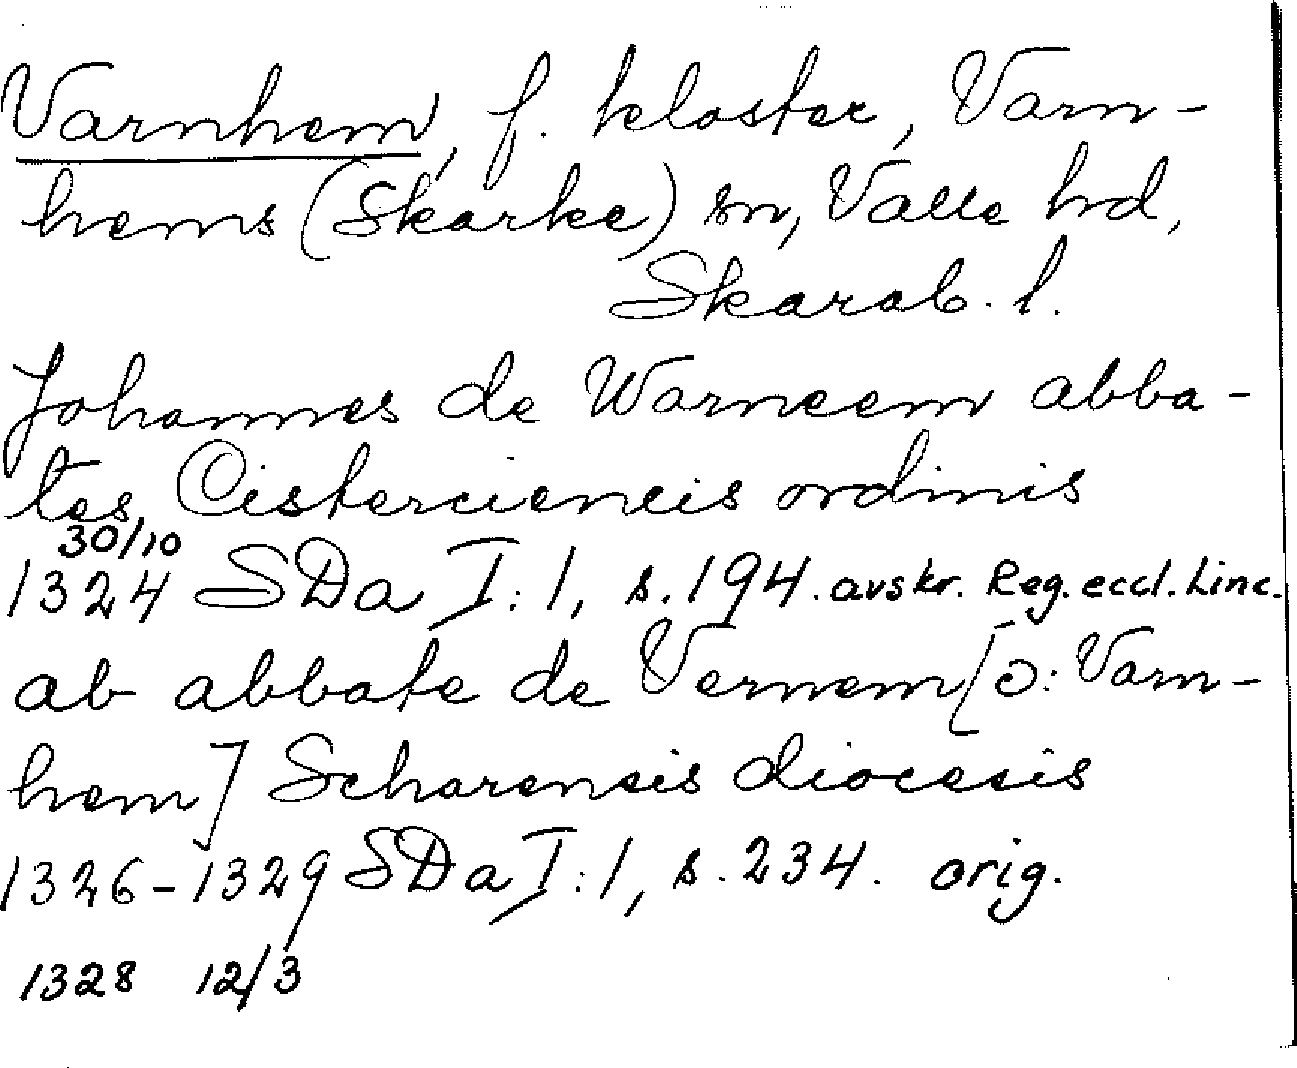 Varnhem, f. kloster, Varn-
hems (Skarke) sn, Valle hd,
Skarab. l.
Johannes de Warneem abba-
tes Cisterciencis ordinis
30/10
1324 SDa I:1, s. 194. avskr. Reg. eccl. Linc.
ab abbate de Vernem [ɔ: Varn-
hem] Scharensis diocesis
1326-1329 SDa I:1, s. 234. orig.
1328 12/3